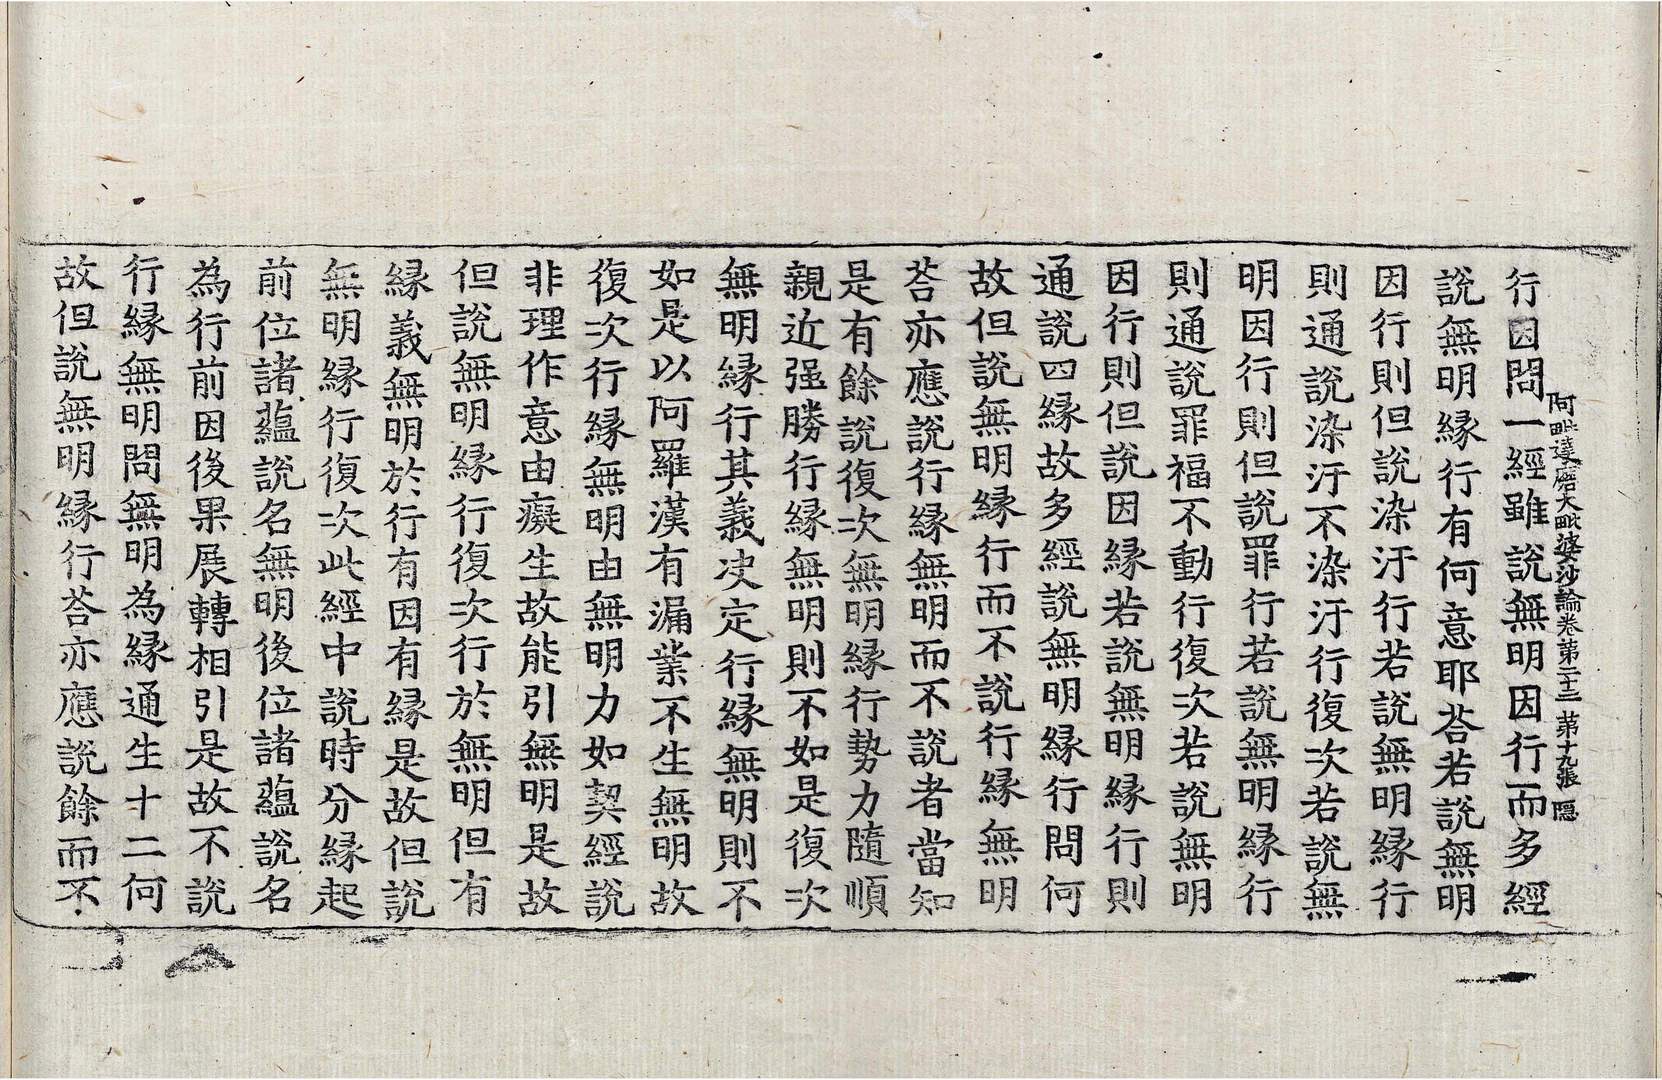 阿毗達磨大毗婆沙論卷第二十三 第十九張 隱
行因問一經雖說無明因行而多經
說無明縁行有何意耶荅若說無明
因行則但說染汙行若說無明縁行
則通說染汙不染汙行復次若說無
明因行則但說罪行若說無明縁行
則通說罪福不動行復次若說無明
因行則但說因縁若說無明縁行則
通說四縁故多經說無明縁行問何
故但說無明縁行而不說行縁無明
荅亦應說行縁無明而不說者當知
是有餘說復次無明縁行勢力隨順
親近强勝行縁無明則不如是復次
無明縁行其義决定行縁無明則不
如是以阿羅漢有漏業不生無明故
復次行縁無明由無明力如契經說
非理作意由癡生故能引無明是故
但說無明縁行復次行於無明但有
縁義無明於行有因有縁是故但說
無明縁行復次此經中說時分縁起
前位諸蘊說名無明後位諸蘊說名
為行前因後果展轉相引是故不說
行縁無明問無明為縁通生十二何
故但說無明縁行荅亦應說餘而不